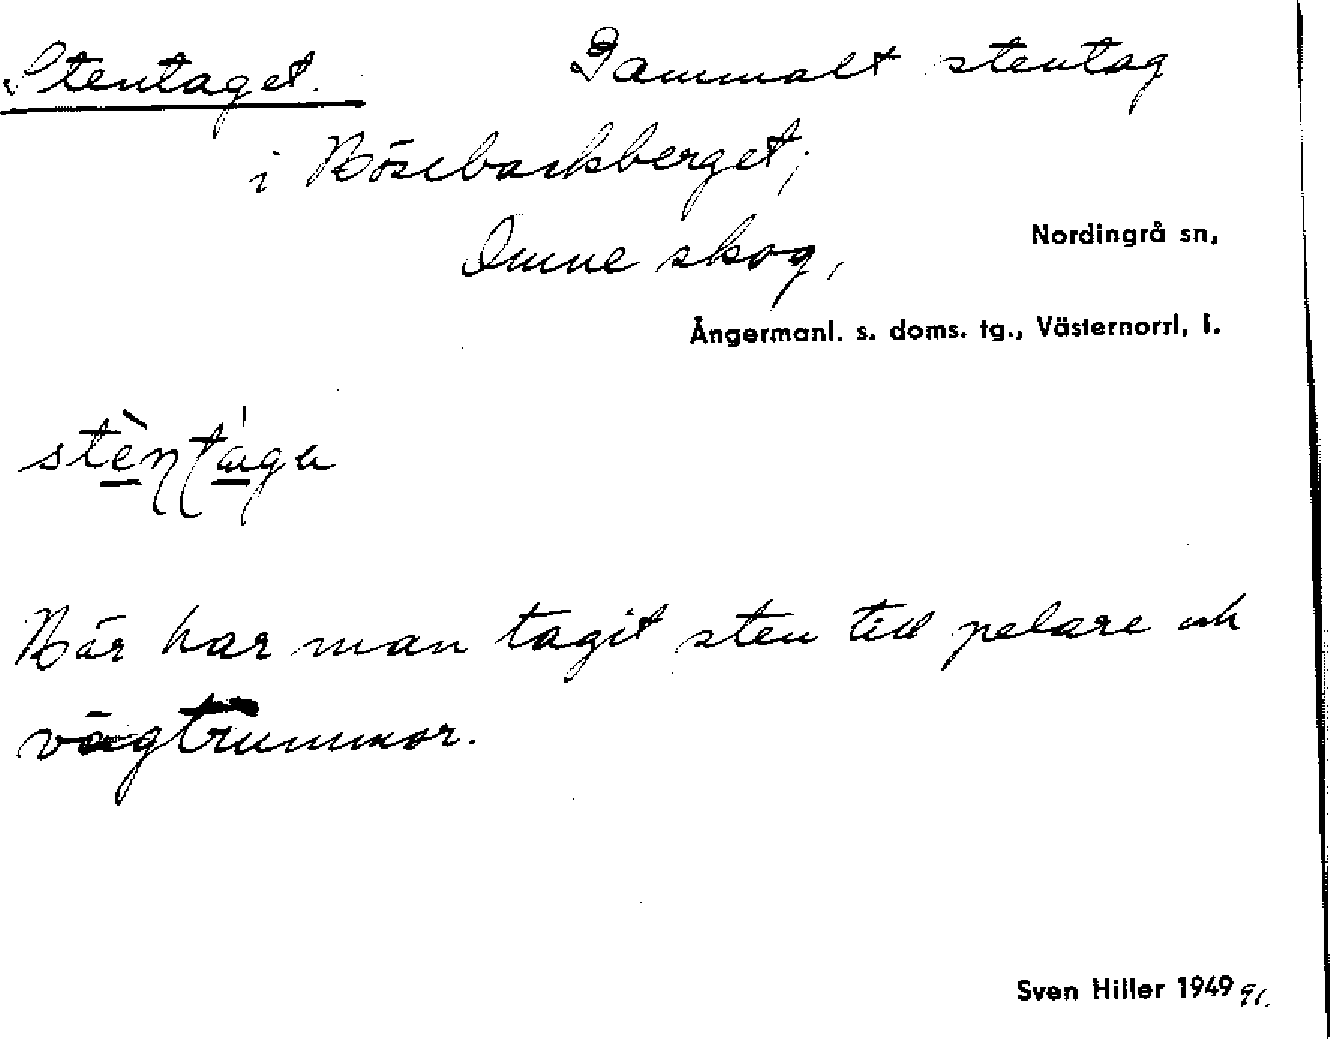 Stentaget. Gammalt stentag
i Hösebackberget,
Omne skog,
Nordingrå sn,
Ångermanl. s. doms. tg., Västernorrl, l.
stèntága
Här har man tagit sten till pelare och
vägtrummor.
Sven Hiller 1949